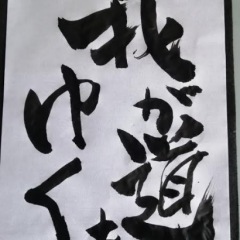 我が道
ゆく